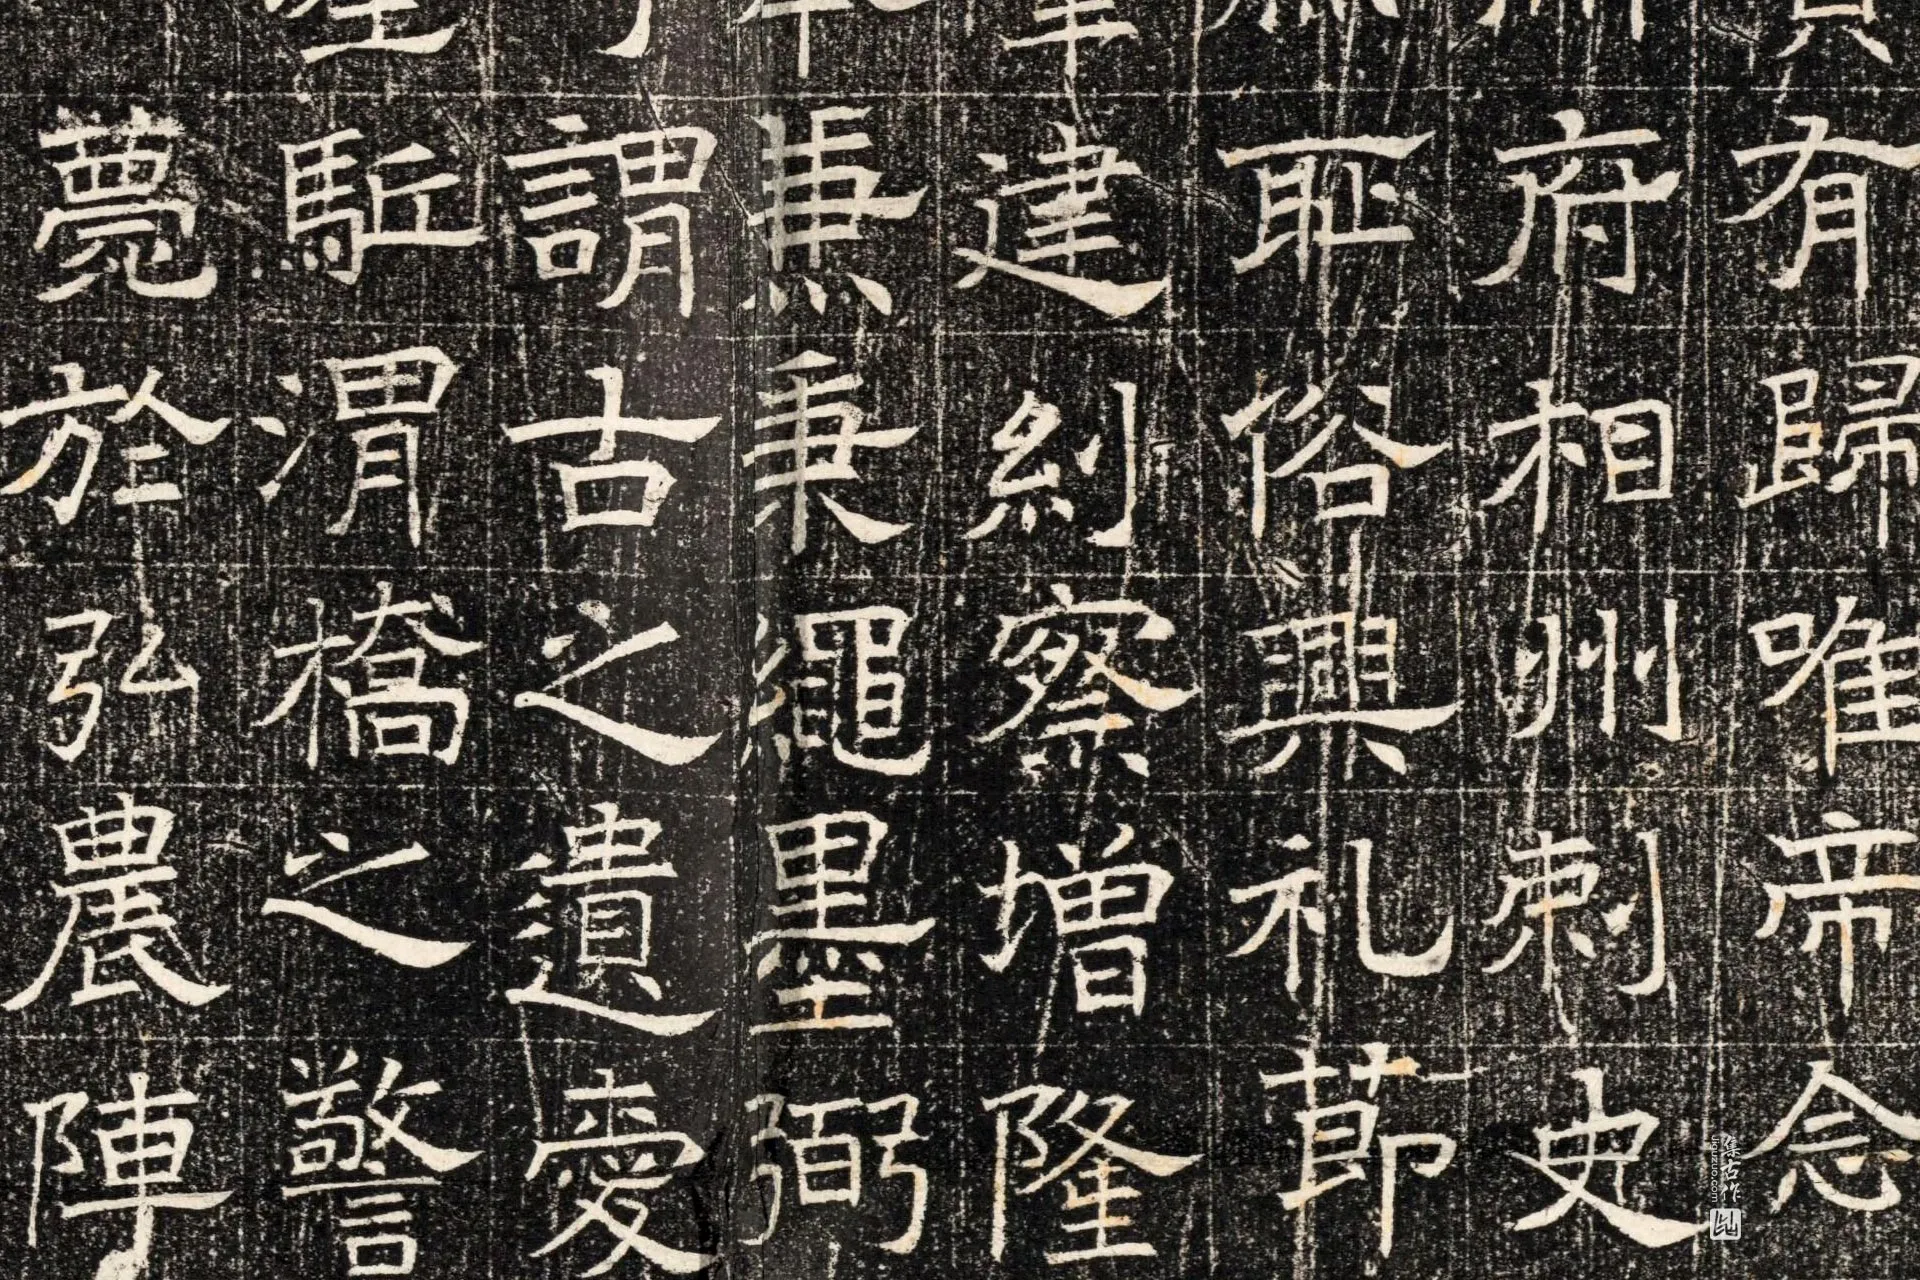 有歸唯帝念
府相州刺史
耻俗興礼莭
建糾察增隆
秉繩墨弼
謂古之遺愛
駈渭橋之警
薨於弘農陣
集古作
jiguzuo.com